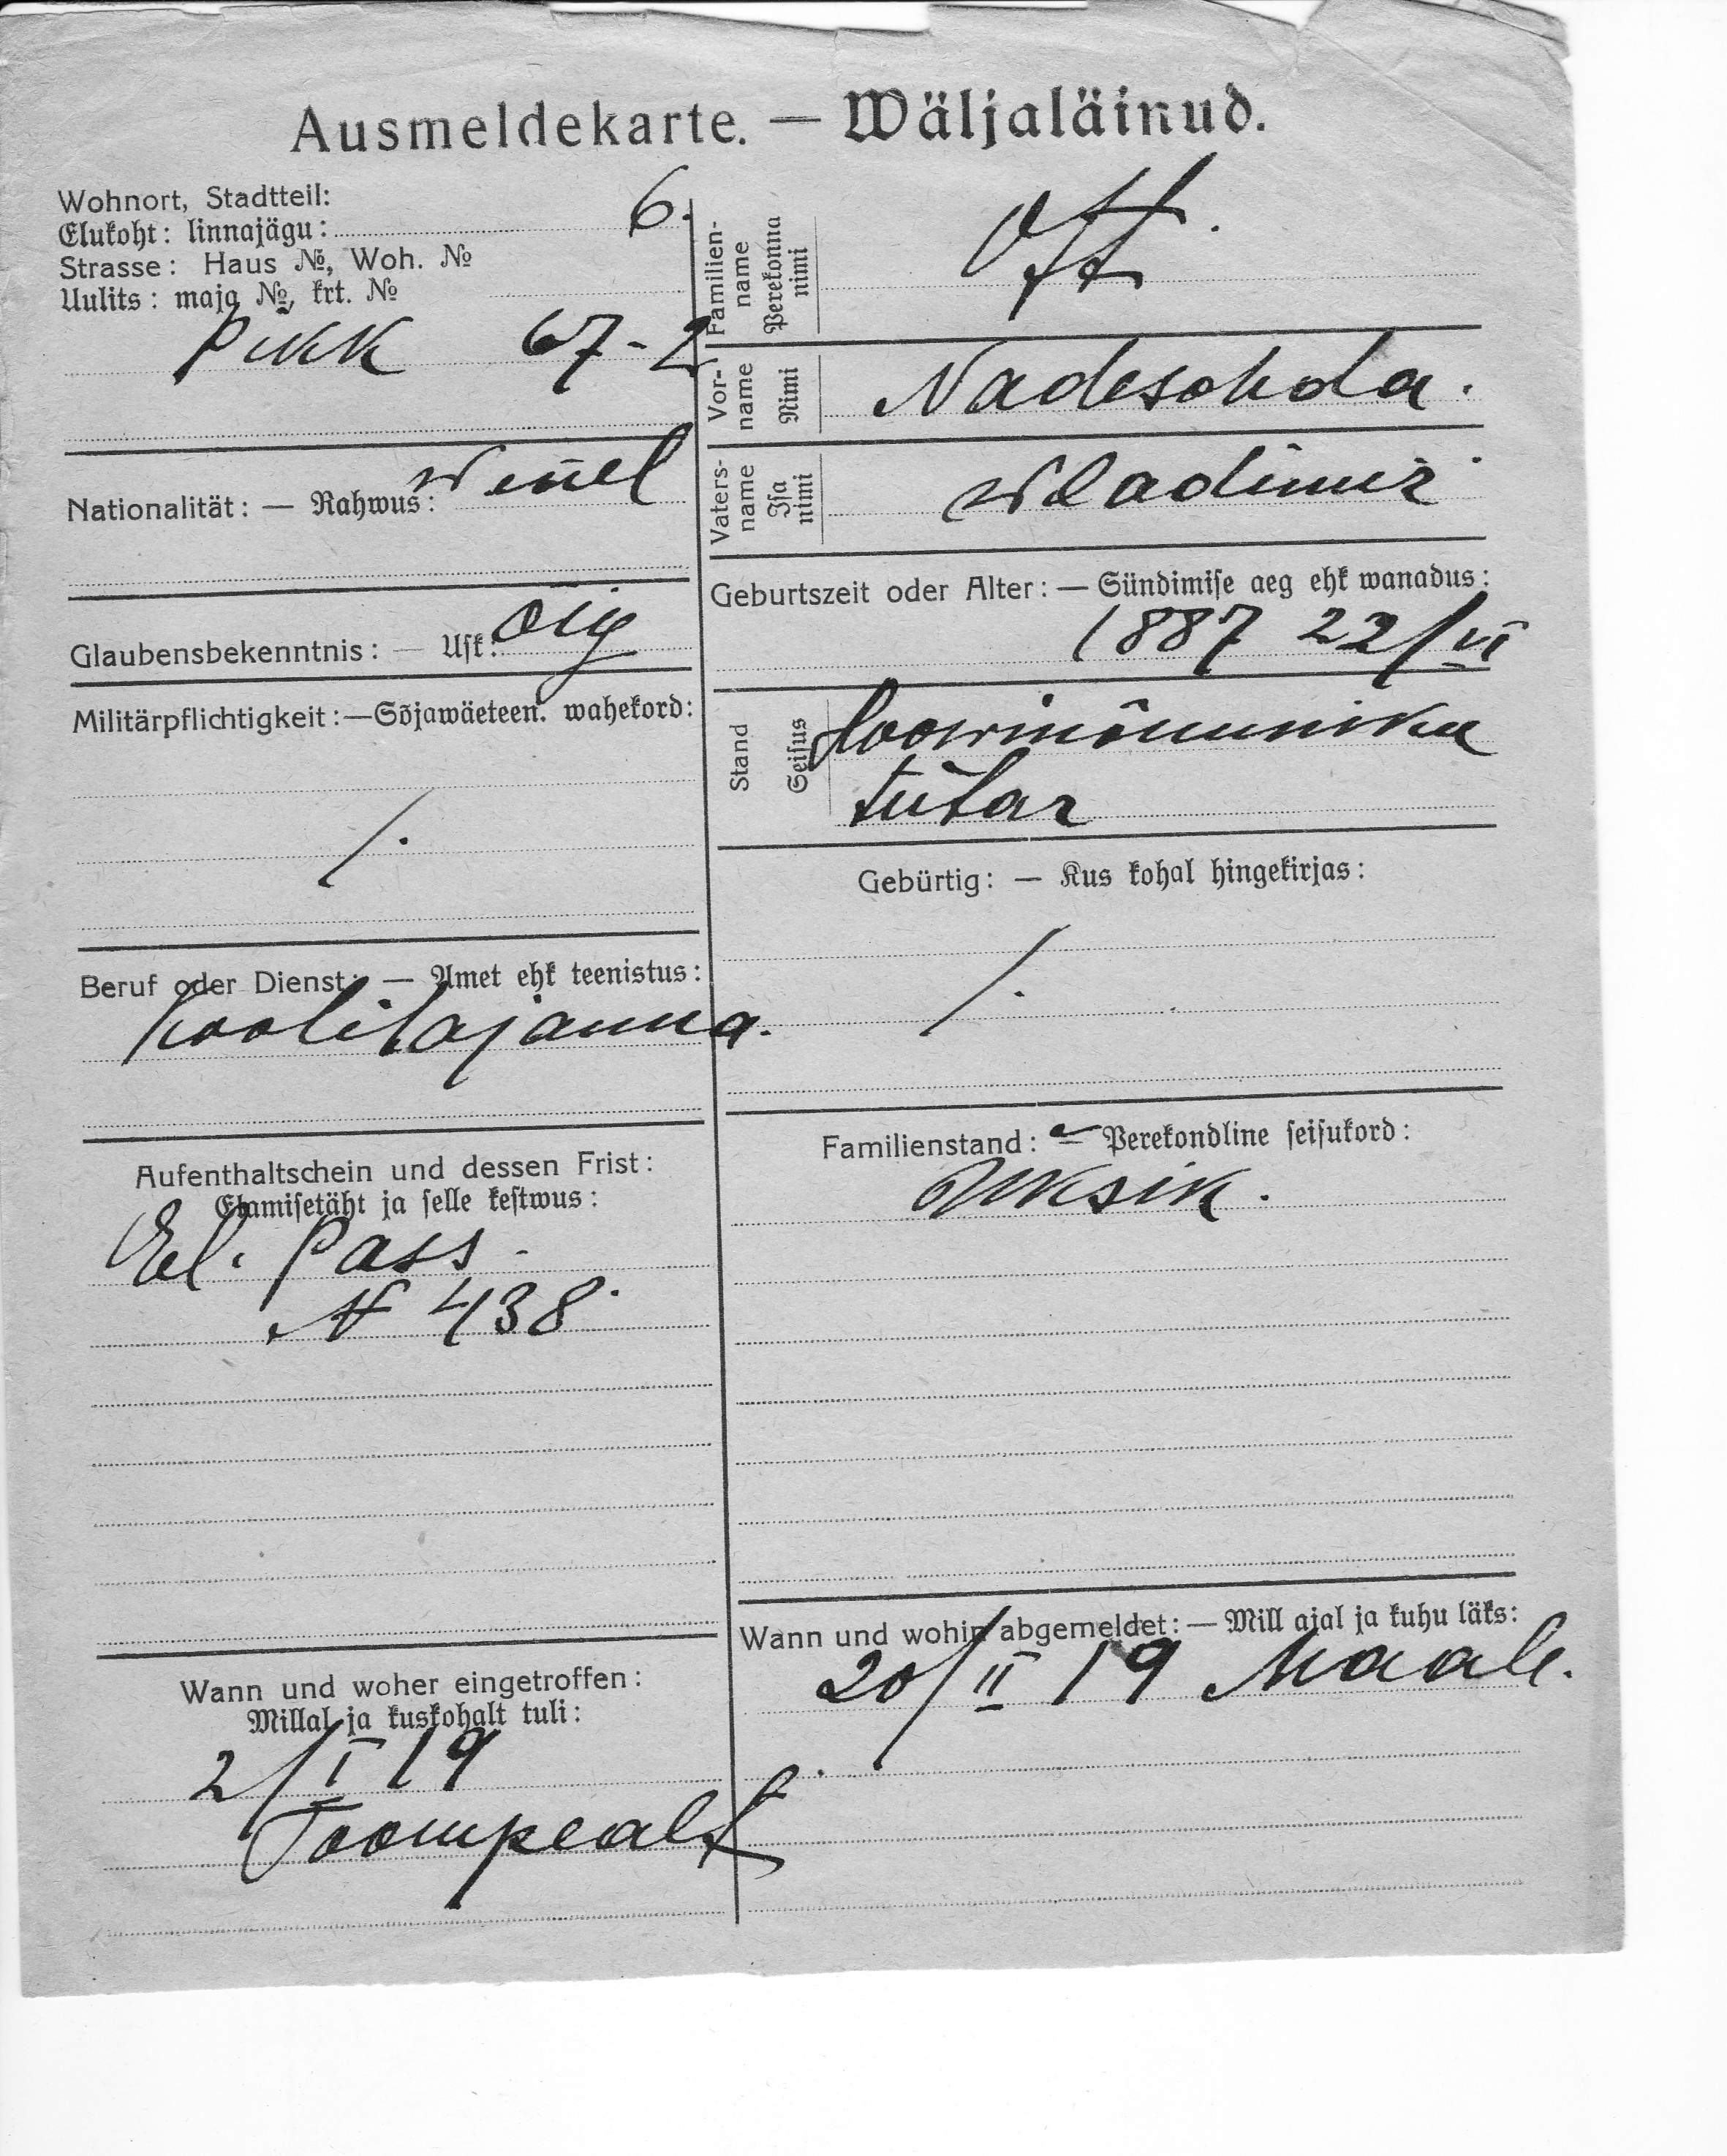 Ausmeldekarte. — Wäljaläinud.
Wohnort, Stadtteil:
Elukoht: linnajägu: 6.
Strasse: Haus №, Woh. №
Uulits: maja №, krt. №
Pikk 67-2
Nationalität: — Rahwus: Wenel
Glaubensbekenntnis: — Usk: Õig
Militärpflichtigkeit: — Sõjawäeteen. wahekord:
/.
Beruf oder Dienst: — Amet ehk teenistus:
Koolitajanna.
Aufenthaltschein und dessen Frist:
Elamisetäht ja selle kestwus:
El. Pass.
N 438.
Wann und woher eingetroffen:
Millal ja kuskohalt tuli:
2/I 19
Toompealt
Familien-
name
Perekonna
nimi
Vor-
name
Nimi
Nadeschda.
Vaters-
name
Isa
nimi
Wladimir
Geburtszeit oder Alter: — Sündimise aeg ehk wanadus:
1887 22/VI
Stand
Seisus
tütar
Gebürtig: — Kus kohal hingekirjas:
/.
Familienstand: — Perekondline seisukord:
Üksik.
Wann und wohin abgemeldet: — Mill ajal ja kuhu läks:
20/II 19 Maale.